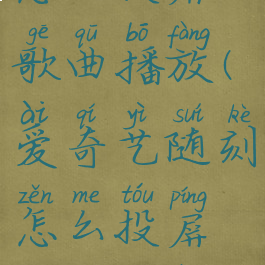 gē qū bō fàng
歌曲播放(
ài qí yì suí kè
爱奇艺随刻
zěn me tóu píng
怎么投屏